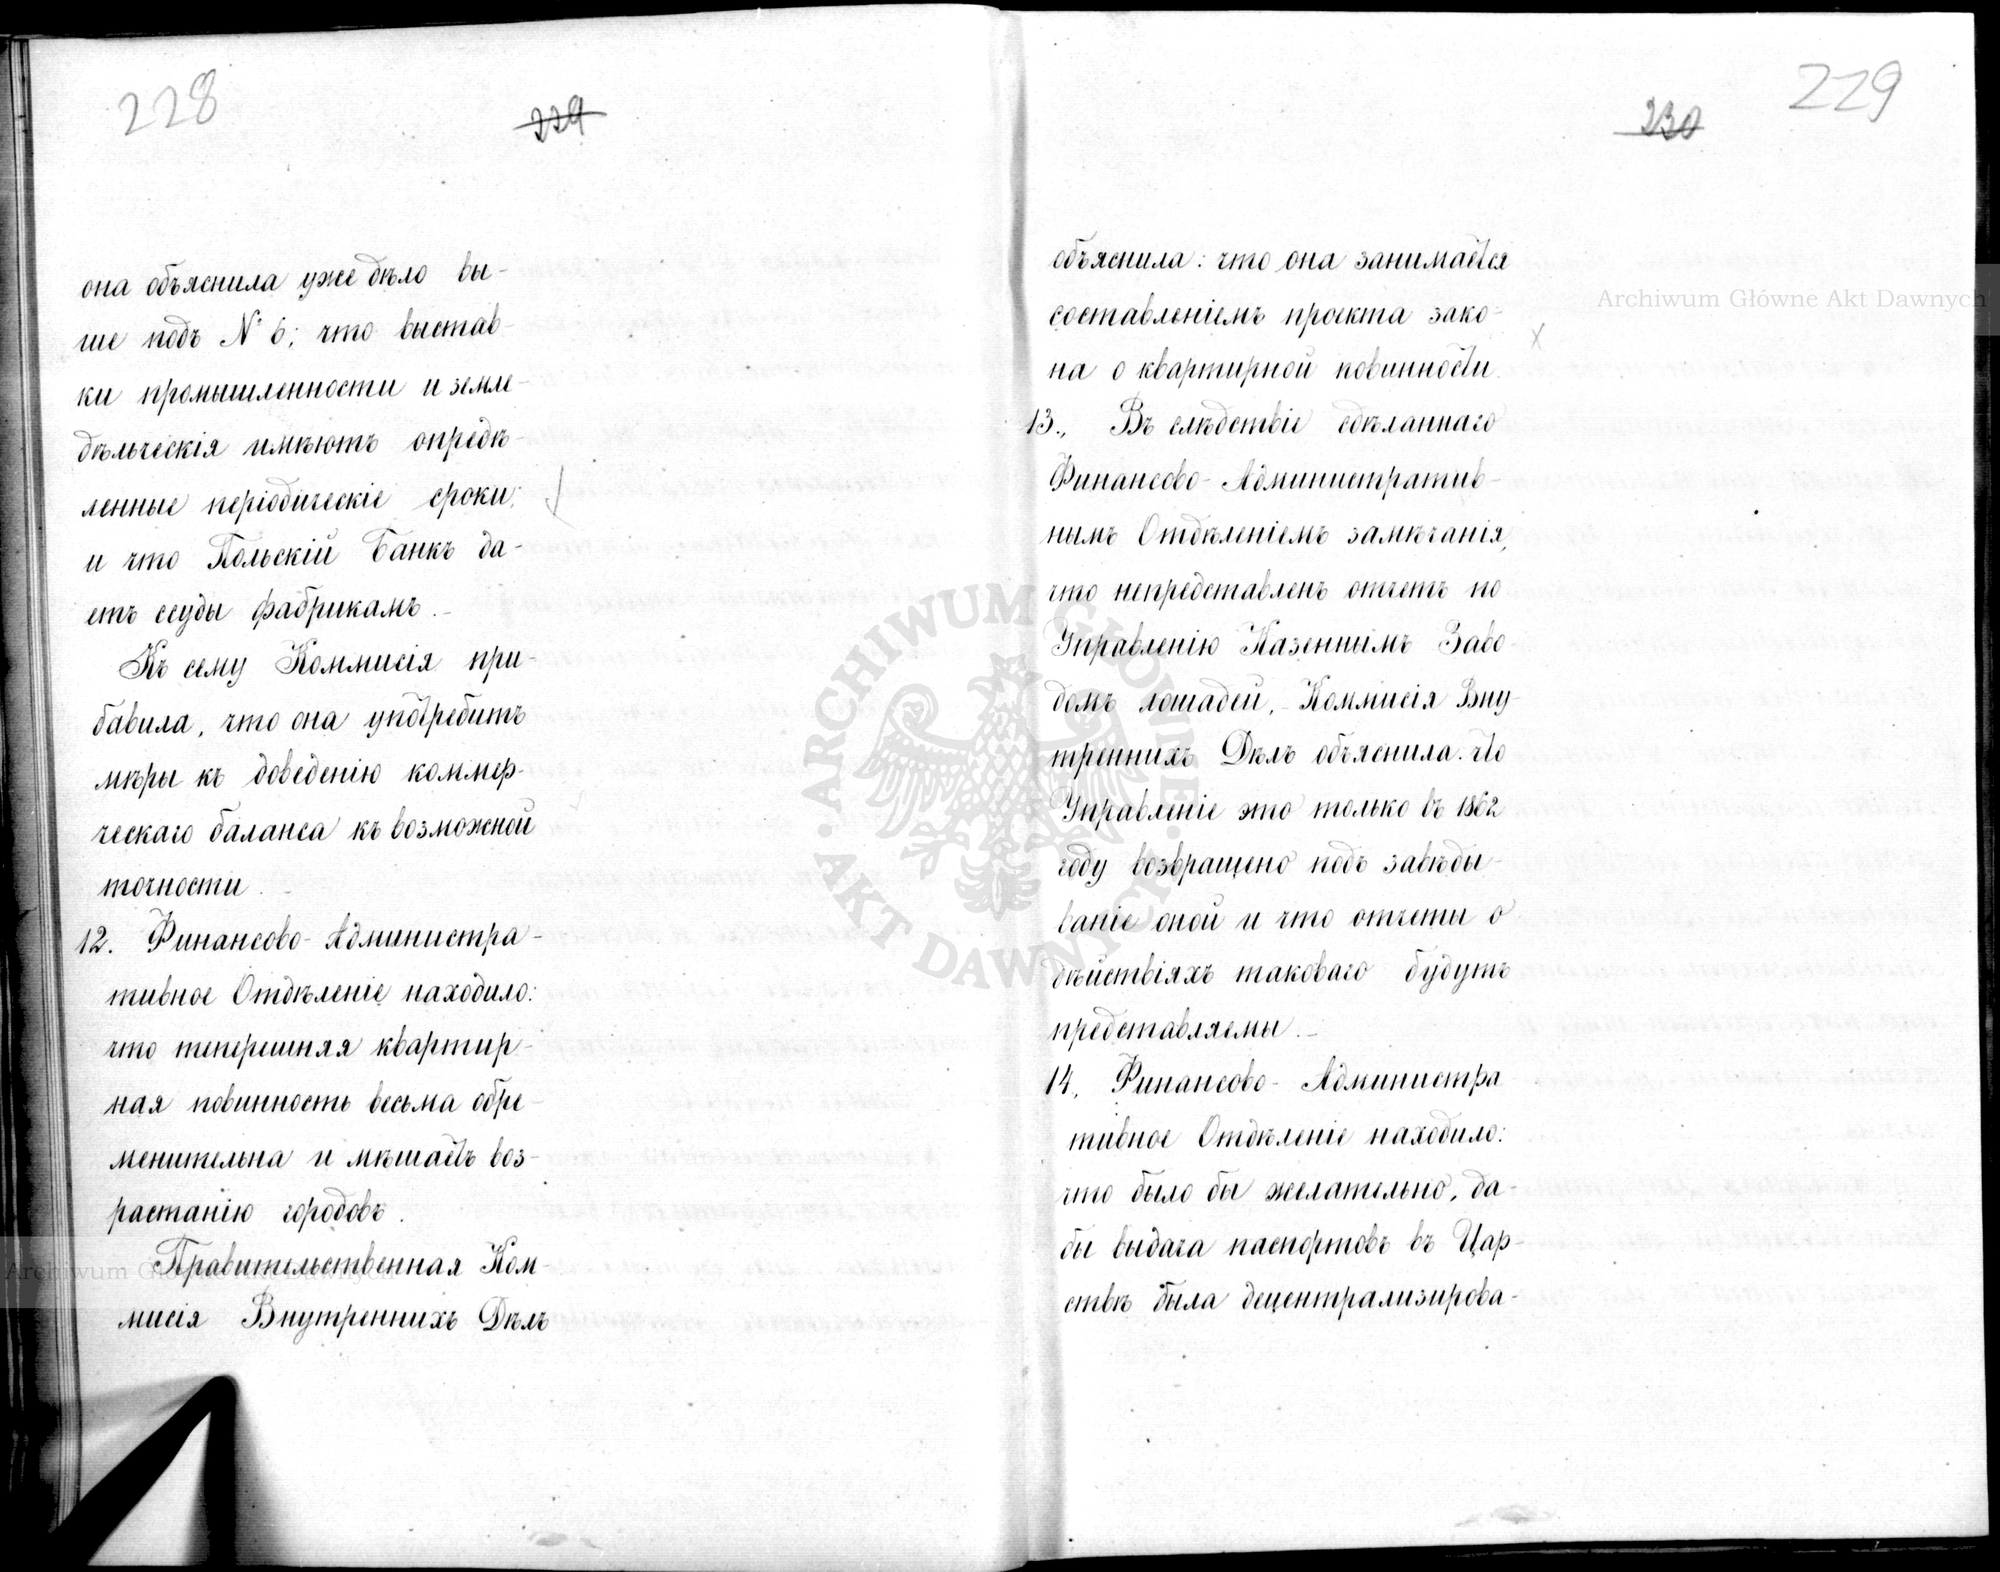 228
229
она объяснила уже дѣло вы-
ше подъ № 6; что выстав-
ки промышленности и земле-
дѣльческія имѣютъ опредѣ-
ленные періодическіе сроки;
и что Польскій Банкъ да-
етъ ссуды фабрикамъ.
Къ сему Коммисія при-
бавила, что она употребитъ
мѣры къ доведенію коммер-
ческаго баланса къ возможной
точности.
12. Финансово-Администра-
тивное Отдѣленіе находило:
что теперешняя квартир-
ная повинность весьма обре-
менительна и мѣшаетъ воз-
растанію городовъ.
Правительственная Ком-
мисія Внутреннихъ Дѣлъ
229
230
объяснила: что она занимается
составленіемъ проекта зако-
на о квартирной повинности.
13., Въ слѣдствіе сдѣланнаго
Финансово-Административ-
нымъ Отдѣленіемъ замѣчанія,
что непредставленъ отчетъ по
Управленію Казеннымъ Заво-
домъ лошадей, Коммисія Вну-
треннихъ Дѣлъ объяснила. что
Управленіе это только въ 1862
году возвращено подъ завѣды-
ваніе оной и что отчеты о
дѣйствіяхъ таковаго будутъ
представляемы.
14, Финансово-Администра
тивное Отдѣленіе находило:
что было бы желательно, да-
бы выдача паспортовъ въ Цар-
ствѣ была децентрализирова-
Archiwum Główne Akt Dawnych
Archiwum Główne Akt Dawnych
ARCHIWUM GŁÓWNE
AKT DAWNYCH